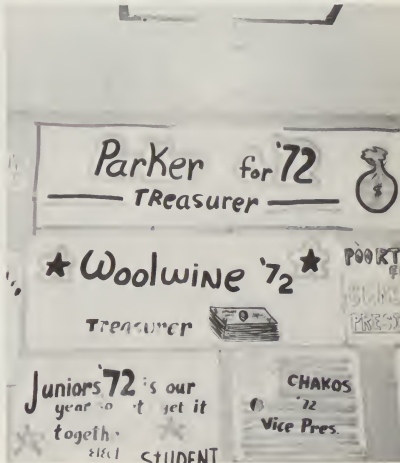 Parker for '72
TReasurer
$
Woolwine '72
Treasurer
Juniors '72 is our
year so let get it
together
STUDENT
CHAKOS
'72
Vice Pres.